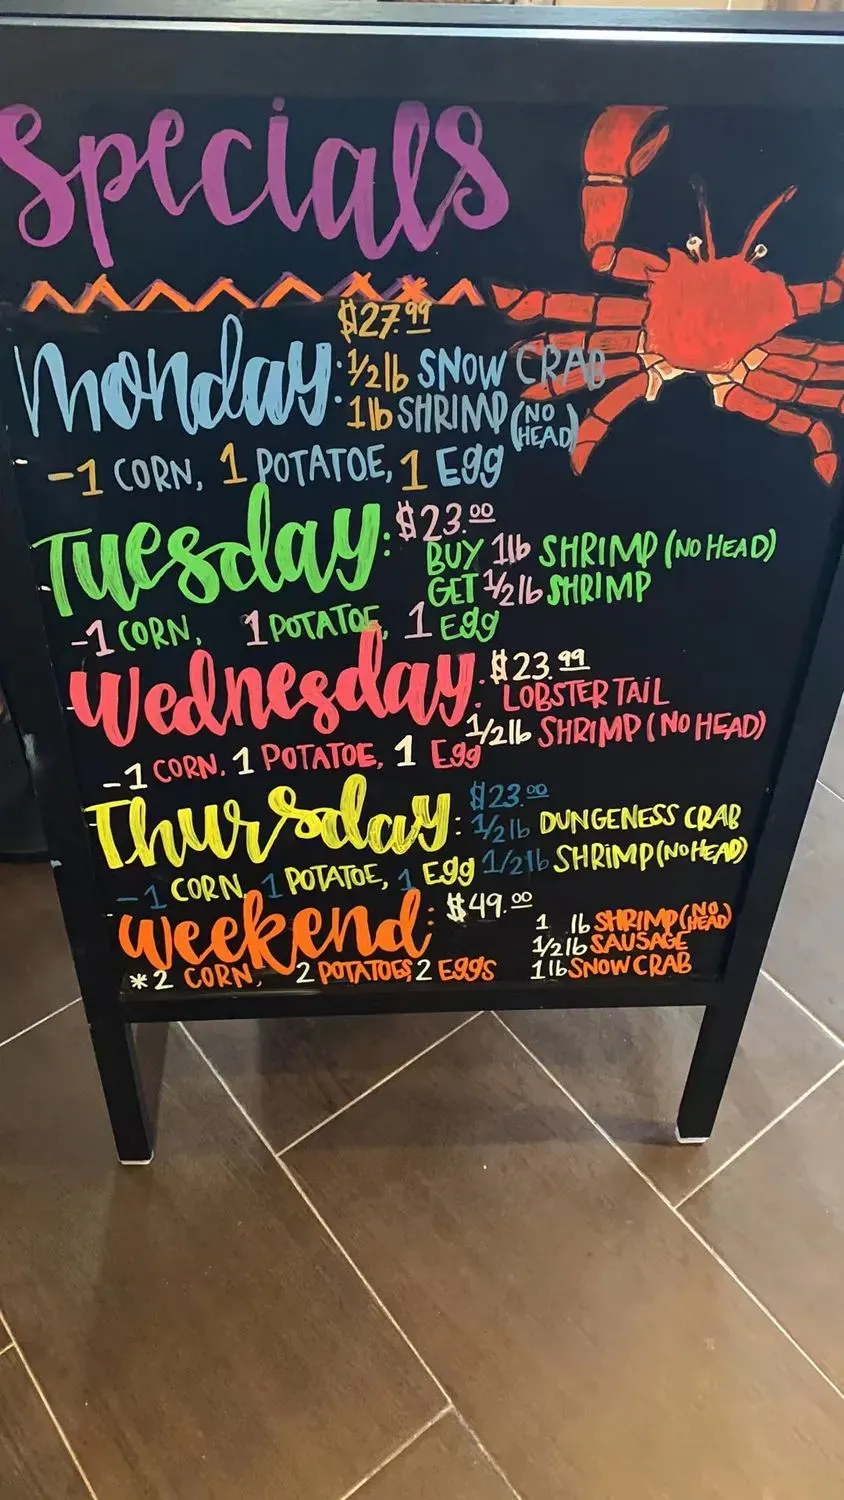 Specials
$27.99
Monday: 1/2 lb SNOW CRAB
1 lb SHRIMP (NO HEAD)
-1 CORN, 1 POTATOE, 1 Egg
Tuesday: $23.00
BUY 1 lb SHRIMP (NO HEAD)
GET 1/2 lb SHRIMP
-1 CORN, 1 POTATOE, 1 Egg
Wednesday: $23.99
LOBSTER TAIL
1/2 lb SHRIMP (NO HEAD)
-1 CORN. 1 POTATOE, 1 Egg
Thursday: $23.00
1/2 lb DUNGENESS CRAB
1/2 lb SHRIMP (NO HEAD)
-1 CORN, 1 POTATOE, 1 Egg
Weekend: $49.00
1 lb SHRIMP (NO HEAD)
1/2 lb SAUSAGE
1 lb SNOW CRAB
*2 CORN, 2 POTATOES, 2 EggS